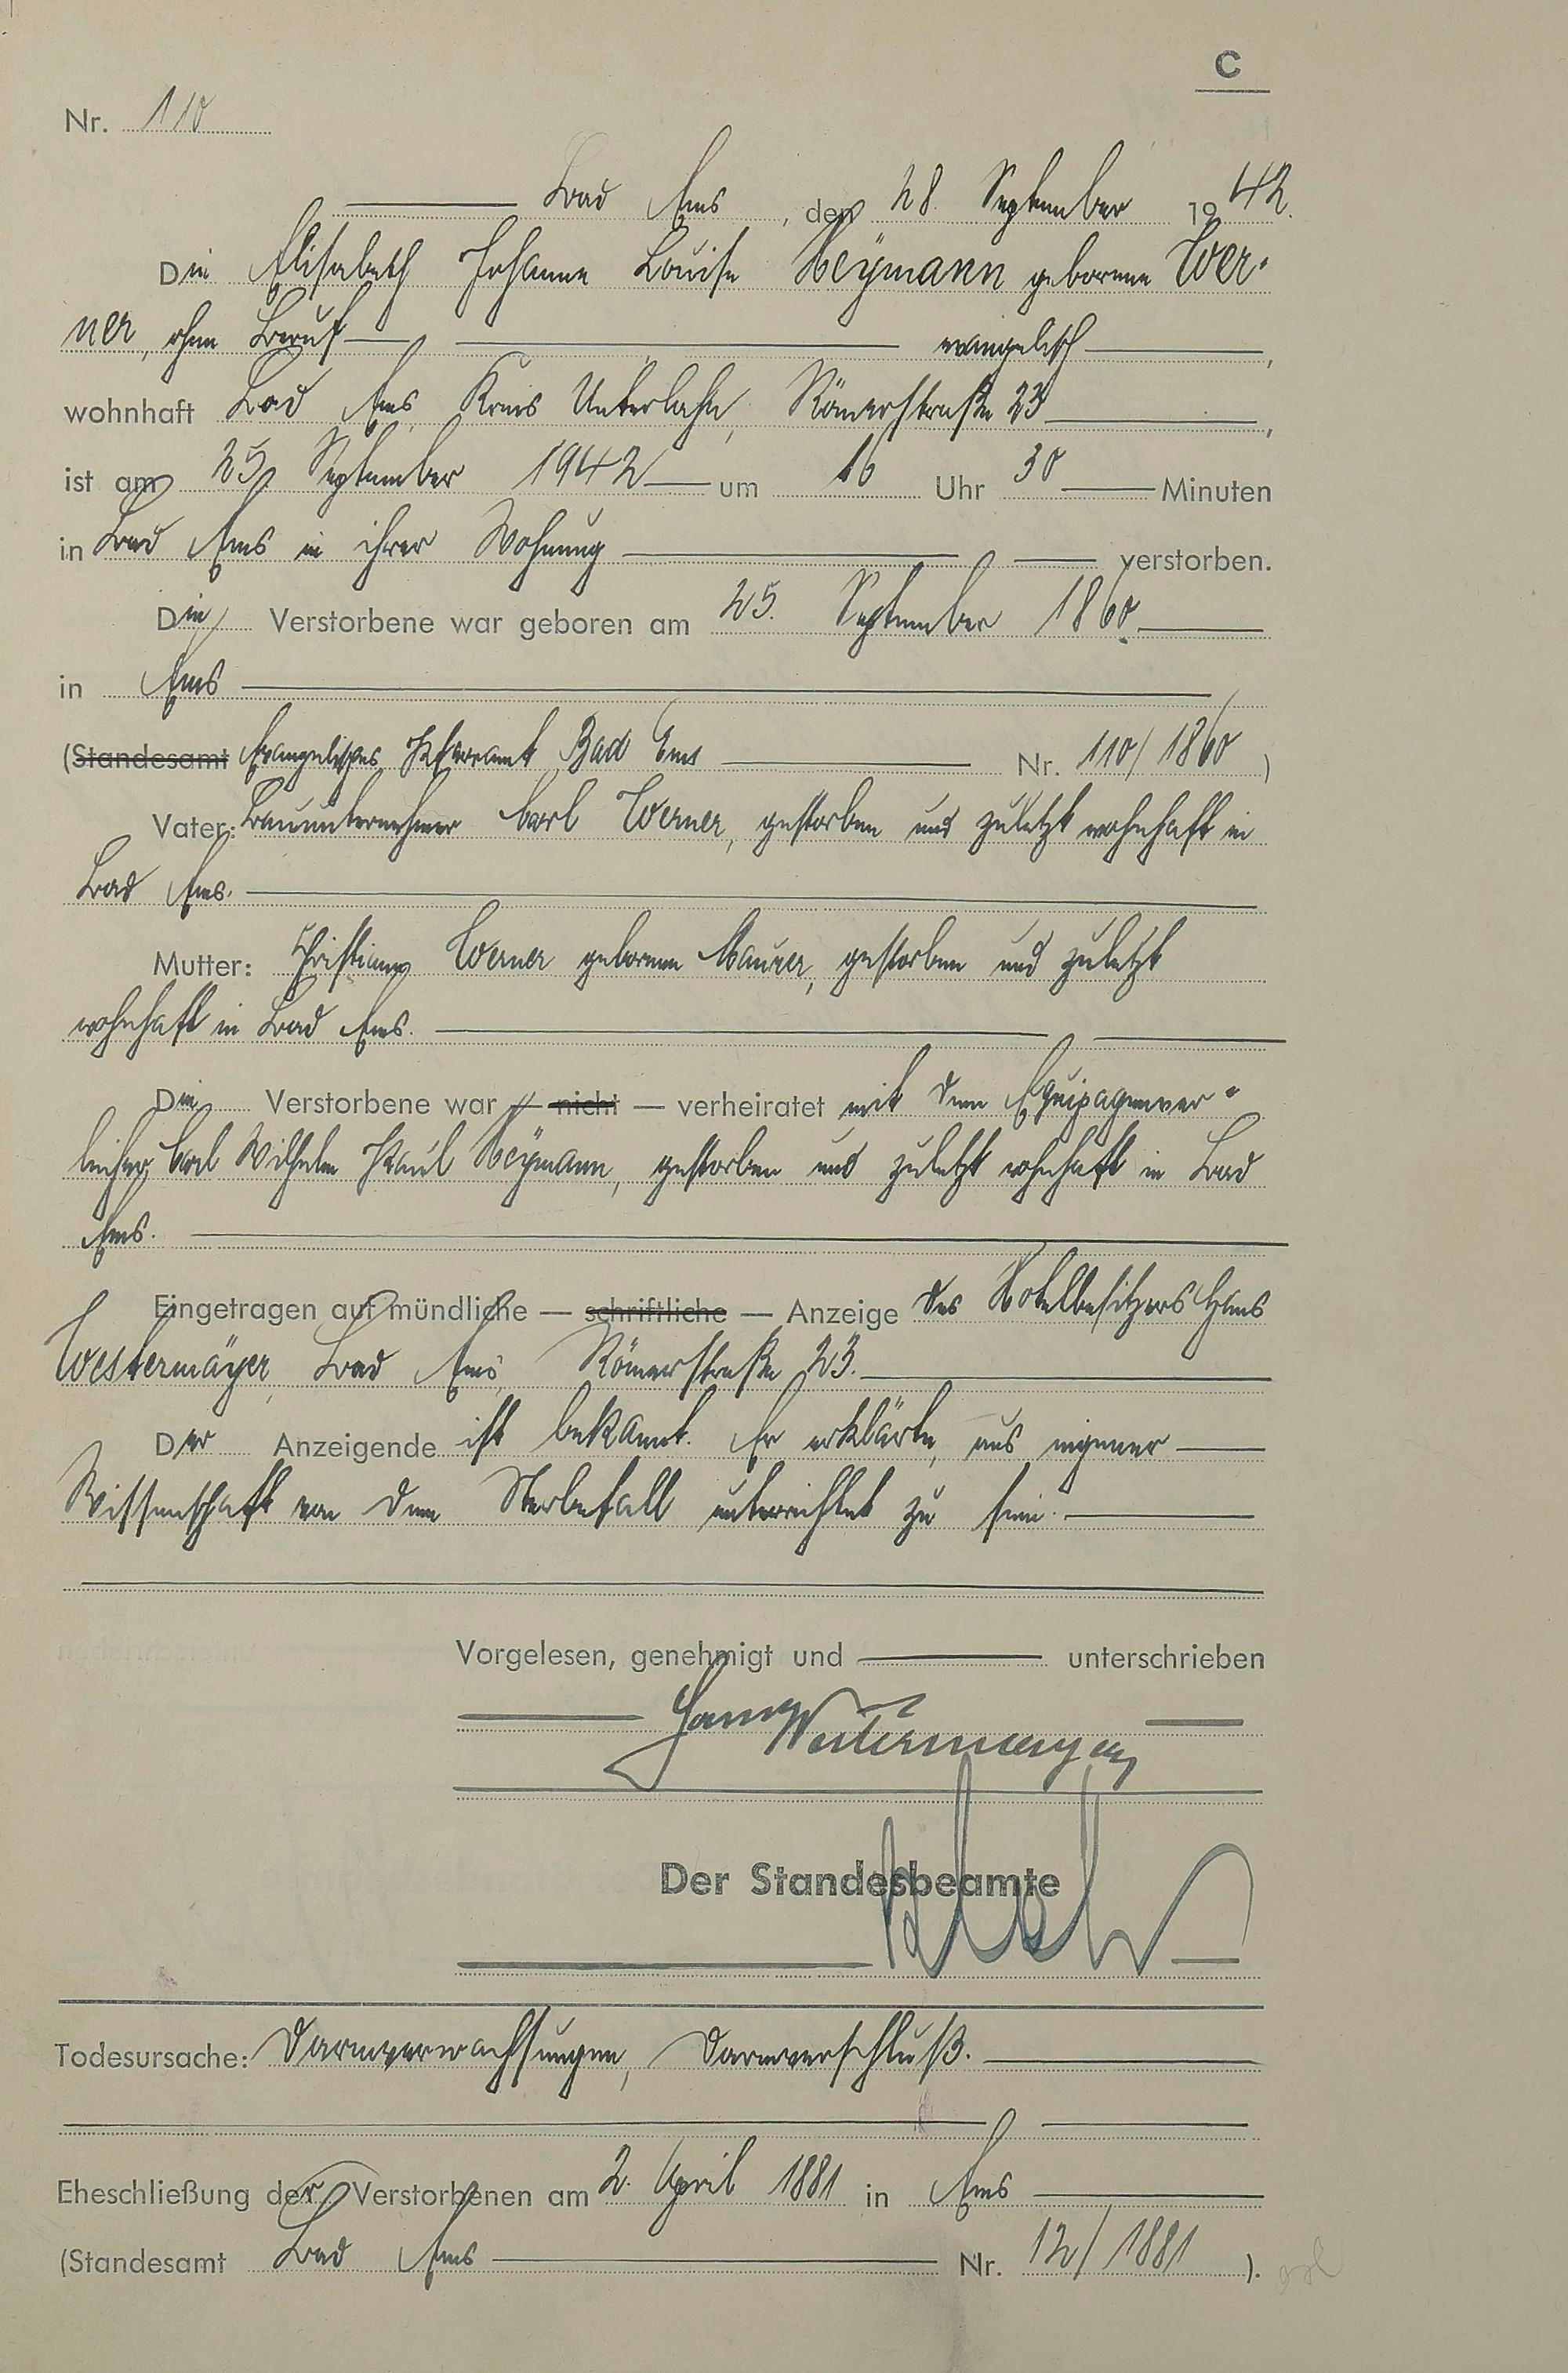 C
Nr. 110
Bad Ems, den 28. September 1942.
Die Elisabeth Johanna Louise Heymann geborene Wer-
ner, ohne Beruf evangelisch,
wohnhaft Bad Ems, Kreis Unterlahn, Römerstraße 23,
ist am 25. September 1942 um 16 Uhr 30 Minuten
in Bad Ems in ihrer Wohnung verstorben.
Die Verstorbene war geboren am 25. September 1860
in Ems
(Standesamt Evangelisches Pfarramt Bad Ems Nr. 110/1860)
Vater: Bauunternehmer Carl Werner, gestorben und zuletzt wohnhaft in
Bad Ems.
Mutter: Christiane Werner geborene Maurer, gestorben und zuletzt
wohnhaft in Bad Ems.
Die Verstorbene war — nicht — verheiratet mit dem Equipagenver-
leiher Carl Wilhelm Paul Heymann, gestorben und zuletzt wohnhaft in Bad
Ems.
Eingetragen auf mündliche — schriftliche — Anzeige des Hotelbesitzers Hans
Westermayer, Bad Ems, Römerstraße 23.
Der Anzeigende ist bekannt. Er erklärte, aus eigener
Wissenschaft von dem Sterbefall unterrichtet zu sein.
Vorgelesen, genehmigt und unterschrieben
Hans Westermayer
Der Standesbeamte
Todesursache: Darmverwachsungen, Darmverschluß.
Eheschließung der Verstorbenen am 2. April 1881 in Ems
(Standesamt Bad Ems Nr. 12/1881).